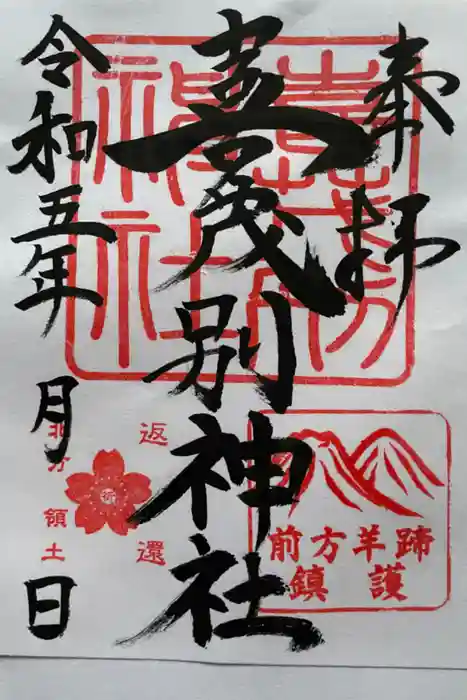 奉拝
喜茂別神社
令和五年
月
日
前方羊蹄
鎮護
北方領土
返還
祈